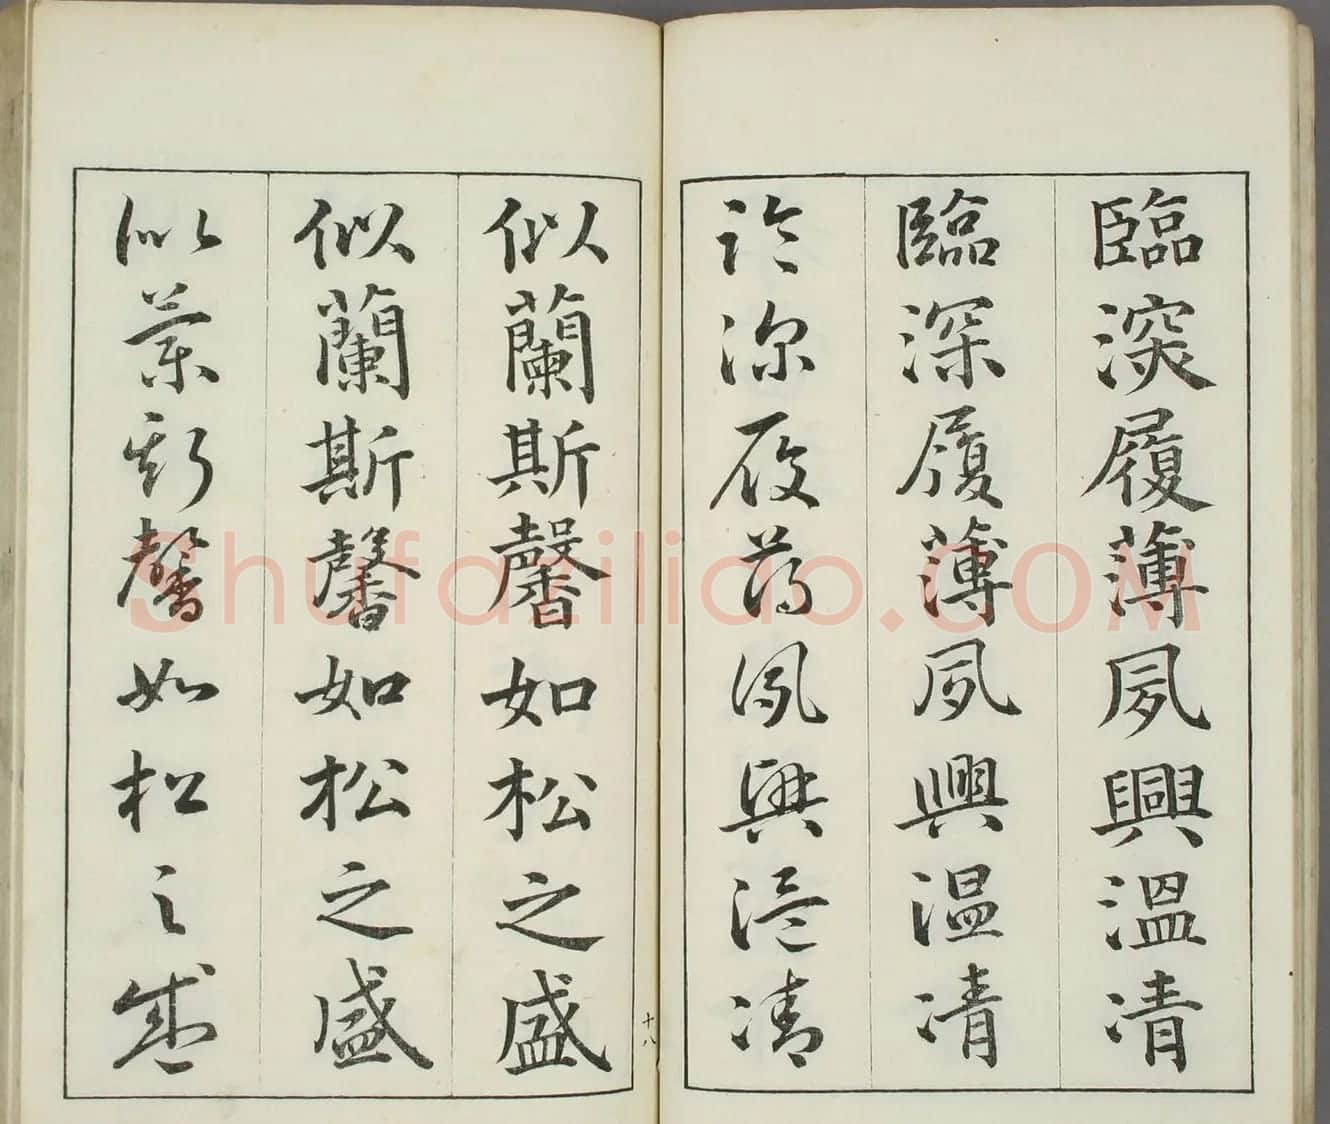 臨深履薄夙興温凊
臨深履薄夙興温凊
臨深履薄夙興温凊
似蘭斯馨如松之盛
似蘭斯馨如松之盛
似蘭斯馨如松之盛
十八
Shufaziliao.COM